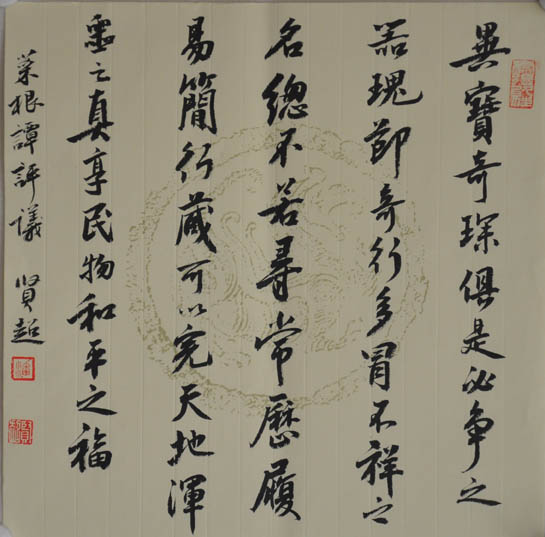 異寶奇琛俱是必争之
器瑰節奇行多冒不祥之
名總不若尋常歷履
易簡行藏可以完天地渾
噩之真享民物和平之福
菜根譚評議 贤超